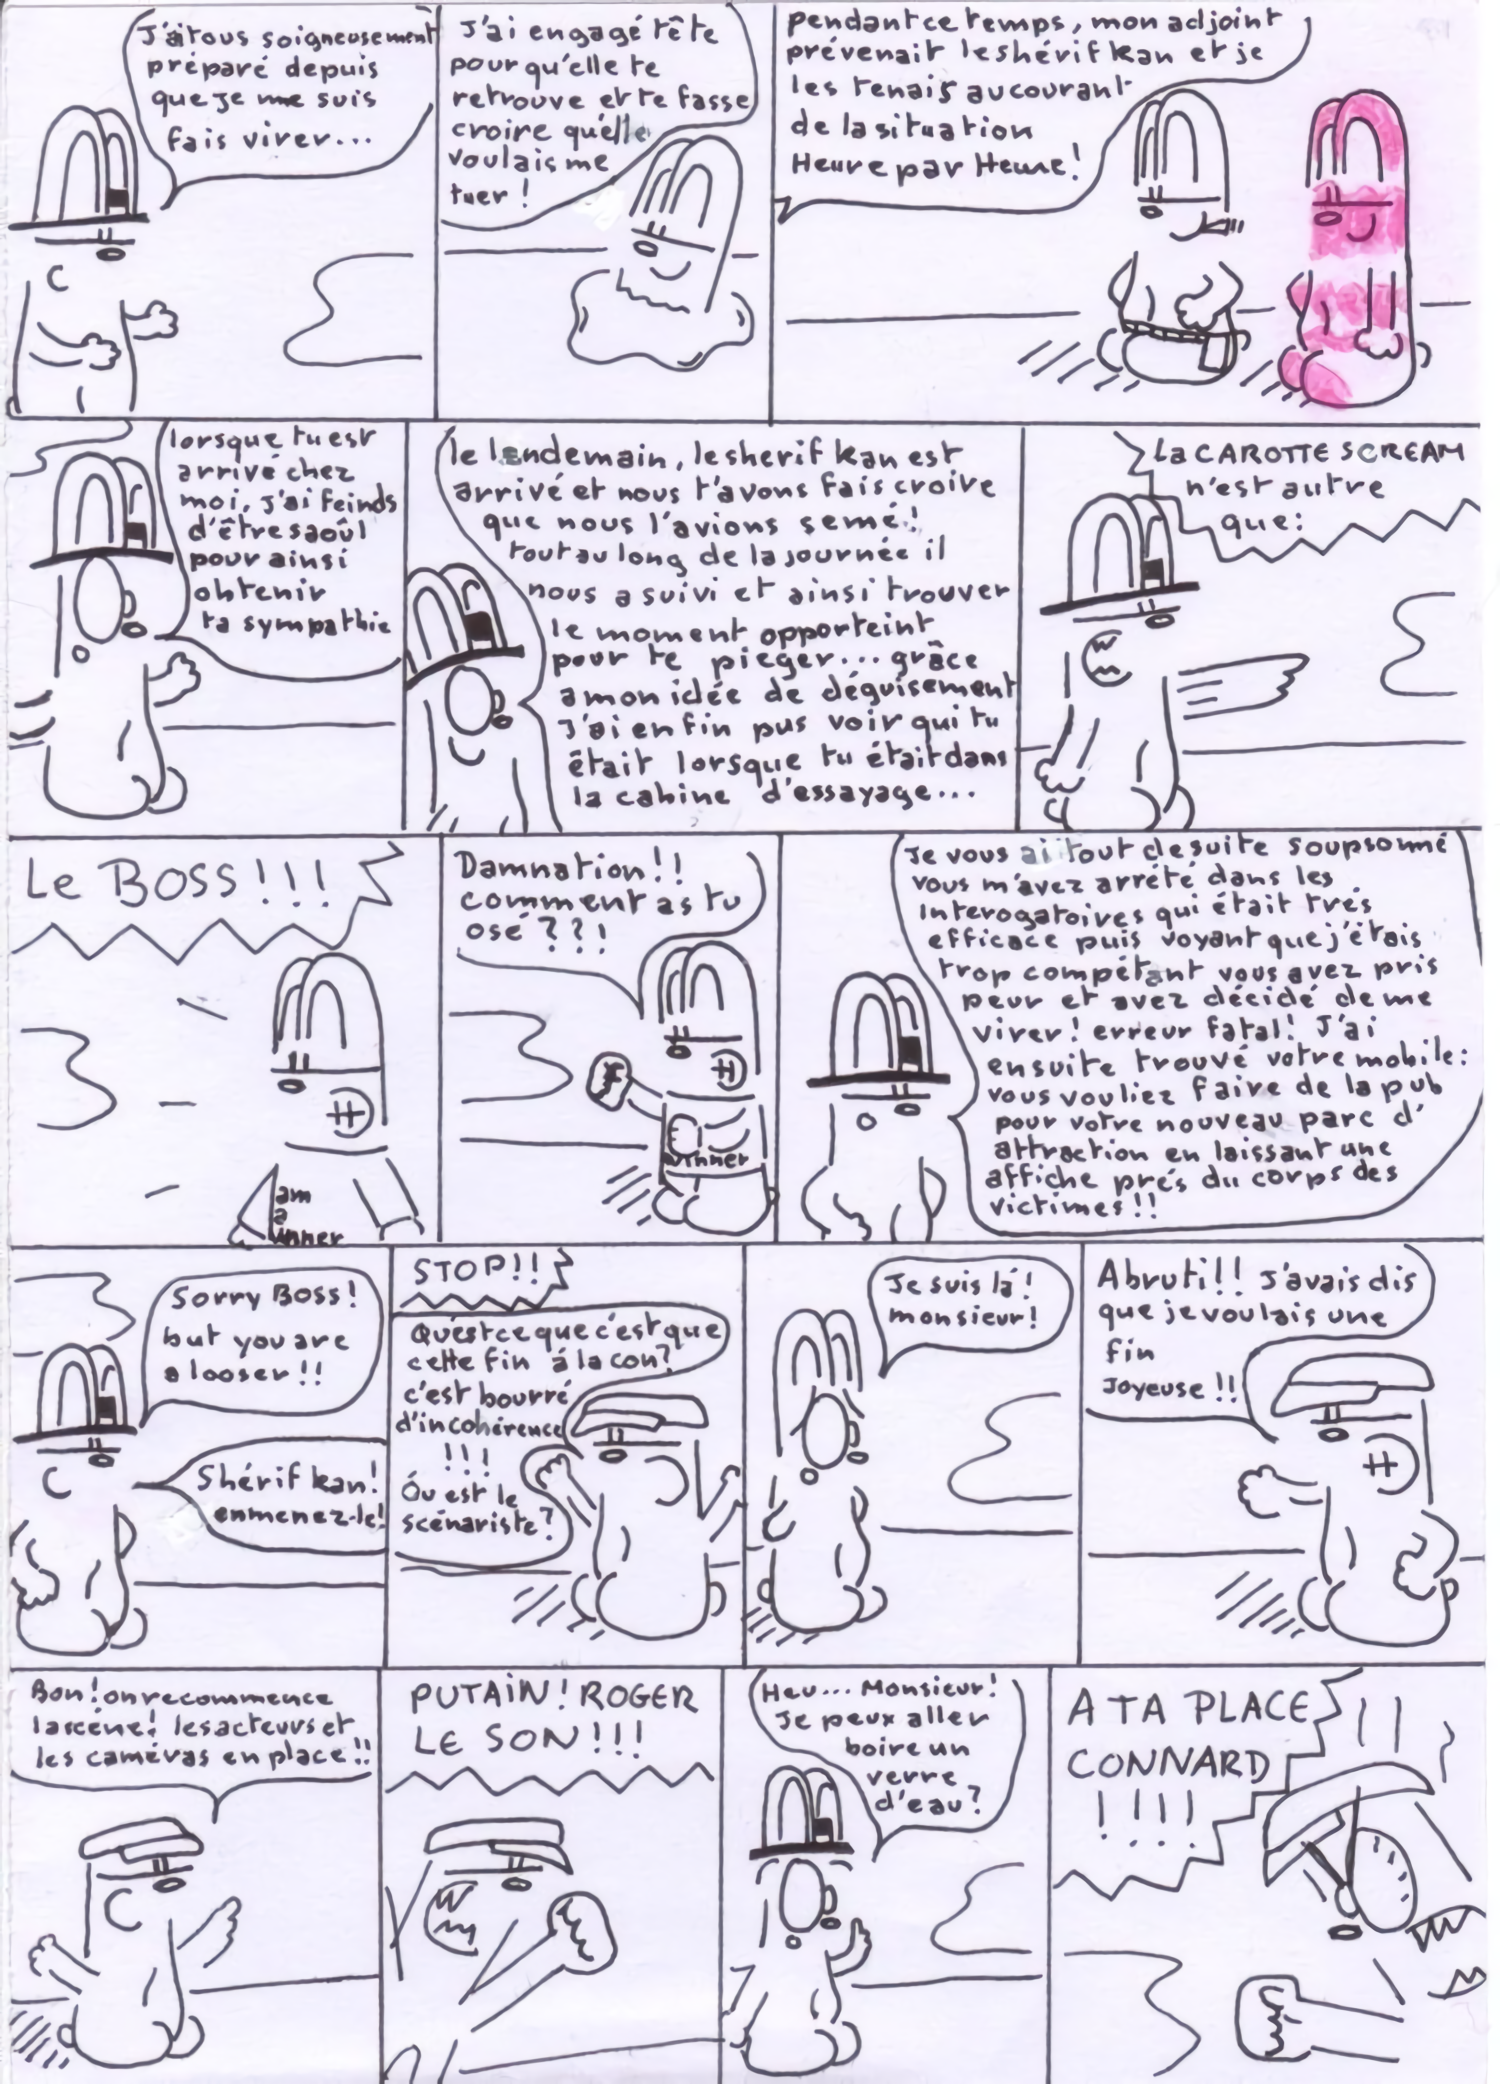 J'ai tous soigneusement
préparé depuis
que je me suis
fais virer...
J'ai engagé tête
pour qu'elle te
retrouve et te fasse
croire qu'elle
voulais me
tuer !
pendant ce temps, mon adjoint
prévenait le shérif kan et je
les tenais au courant
de la situation
Heure par Heure !
lorsque tu est
arrivé chez
moi, j'ai feinds
d'être saoûl
pour ainsi
obtenir
ta sympathie
le lendemain, le sherif kan est
arrivé et nous t'avons fais croire
que nous l'avions semé !
tout au long de la journée il
nous a suivi et ainsi trouver
le moment opporteint
pour te pieger... grâce
a mon idée de déguisement
J'ai enfin pus voir qui tu
était lorsque tu était dans
la cabine d'essayage...
La CAROTTE SCREAM
n'est autre
que :
LE BOSS !!!
am
a
winner
Damnation !!
comment as tu
osé ??!
winner
Je vous ai tout de suite soupsonné
vous m'avez arrété dans les
interogatoires qui était trés
efficace puis voyant que j'étais
trop compétant vous avez pris
peur et avez décidé de me
virer ! erreur fatal ! J'ai
ensuite trouvé votre mobile :
vous vouliez faire de la pub
pour votre nouveau parc d'
attraction en laissant une
affiche prés du corps des
victimes !!
Sorry Boss !
but you are
a looser !!
Shérif kan !
enmenez-le !
STOP !!
Qu'est ce que c'est que
cette fin á la con ?
c'est bourré
d'incohérence
!!!
Óu est le
scénariste ?
Je suis lá !
monsieur !
Abruti !! J'avais dis
que je voulais une
fin
Joyeuse !!
Bon ! on recommence
la scéne ! les acteurs et
les caméras en place !!
PUTAIN ! ROGER
LE SON !!!
Heu... Monsieur !
Je peux aller
boire un
verre
d'eau ?
A TA PLACE
CONNARD
!!!!